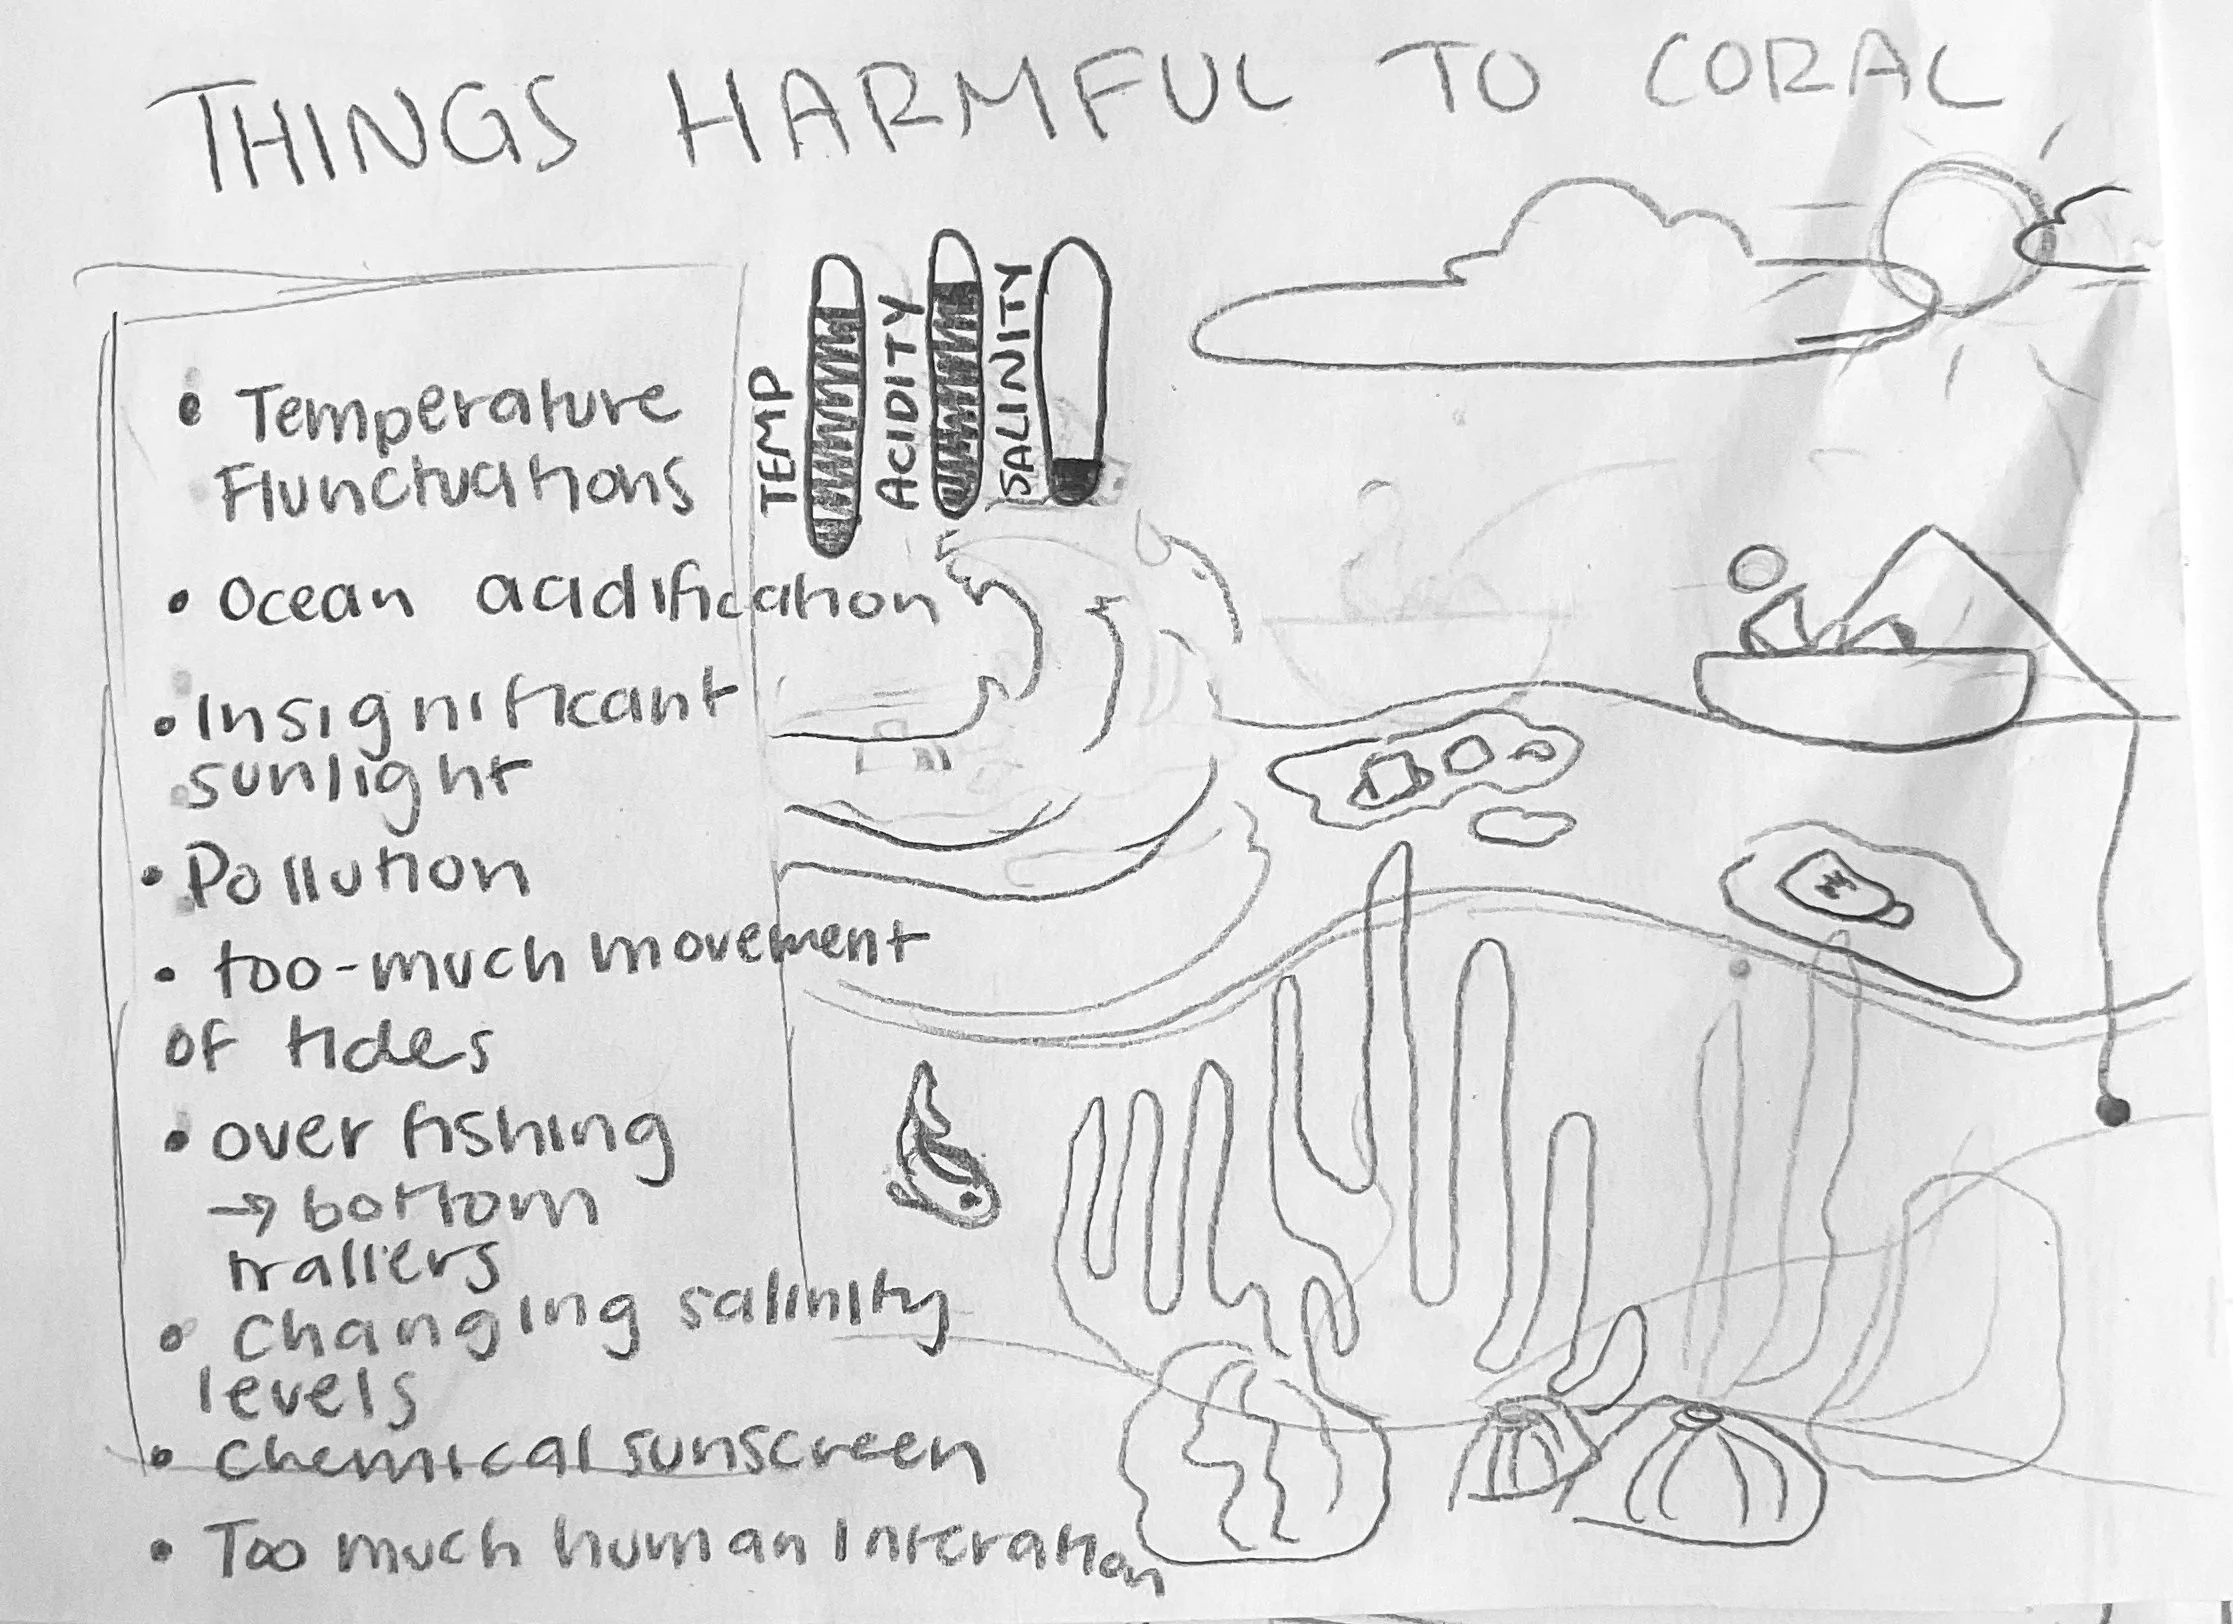 THINGS HARMFUL TO CORAL
TEMP
ACIDITY
SALINITY
• Temperature
Flunctuations
• Ocean acidification
• Insignificant
sunlight
• Pollution
• too-much movement
of tides
• over fishing
→ bottom
trallers
• Changing salinity
levels
• Chemical sunscreen
• Too much human Interation